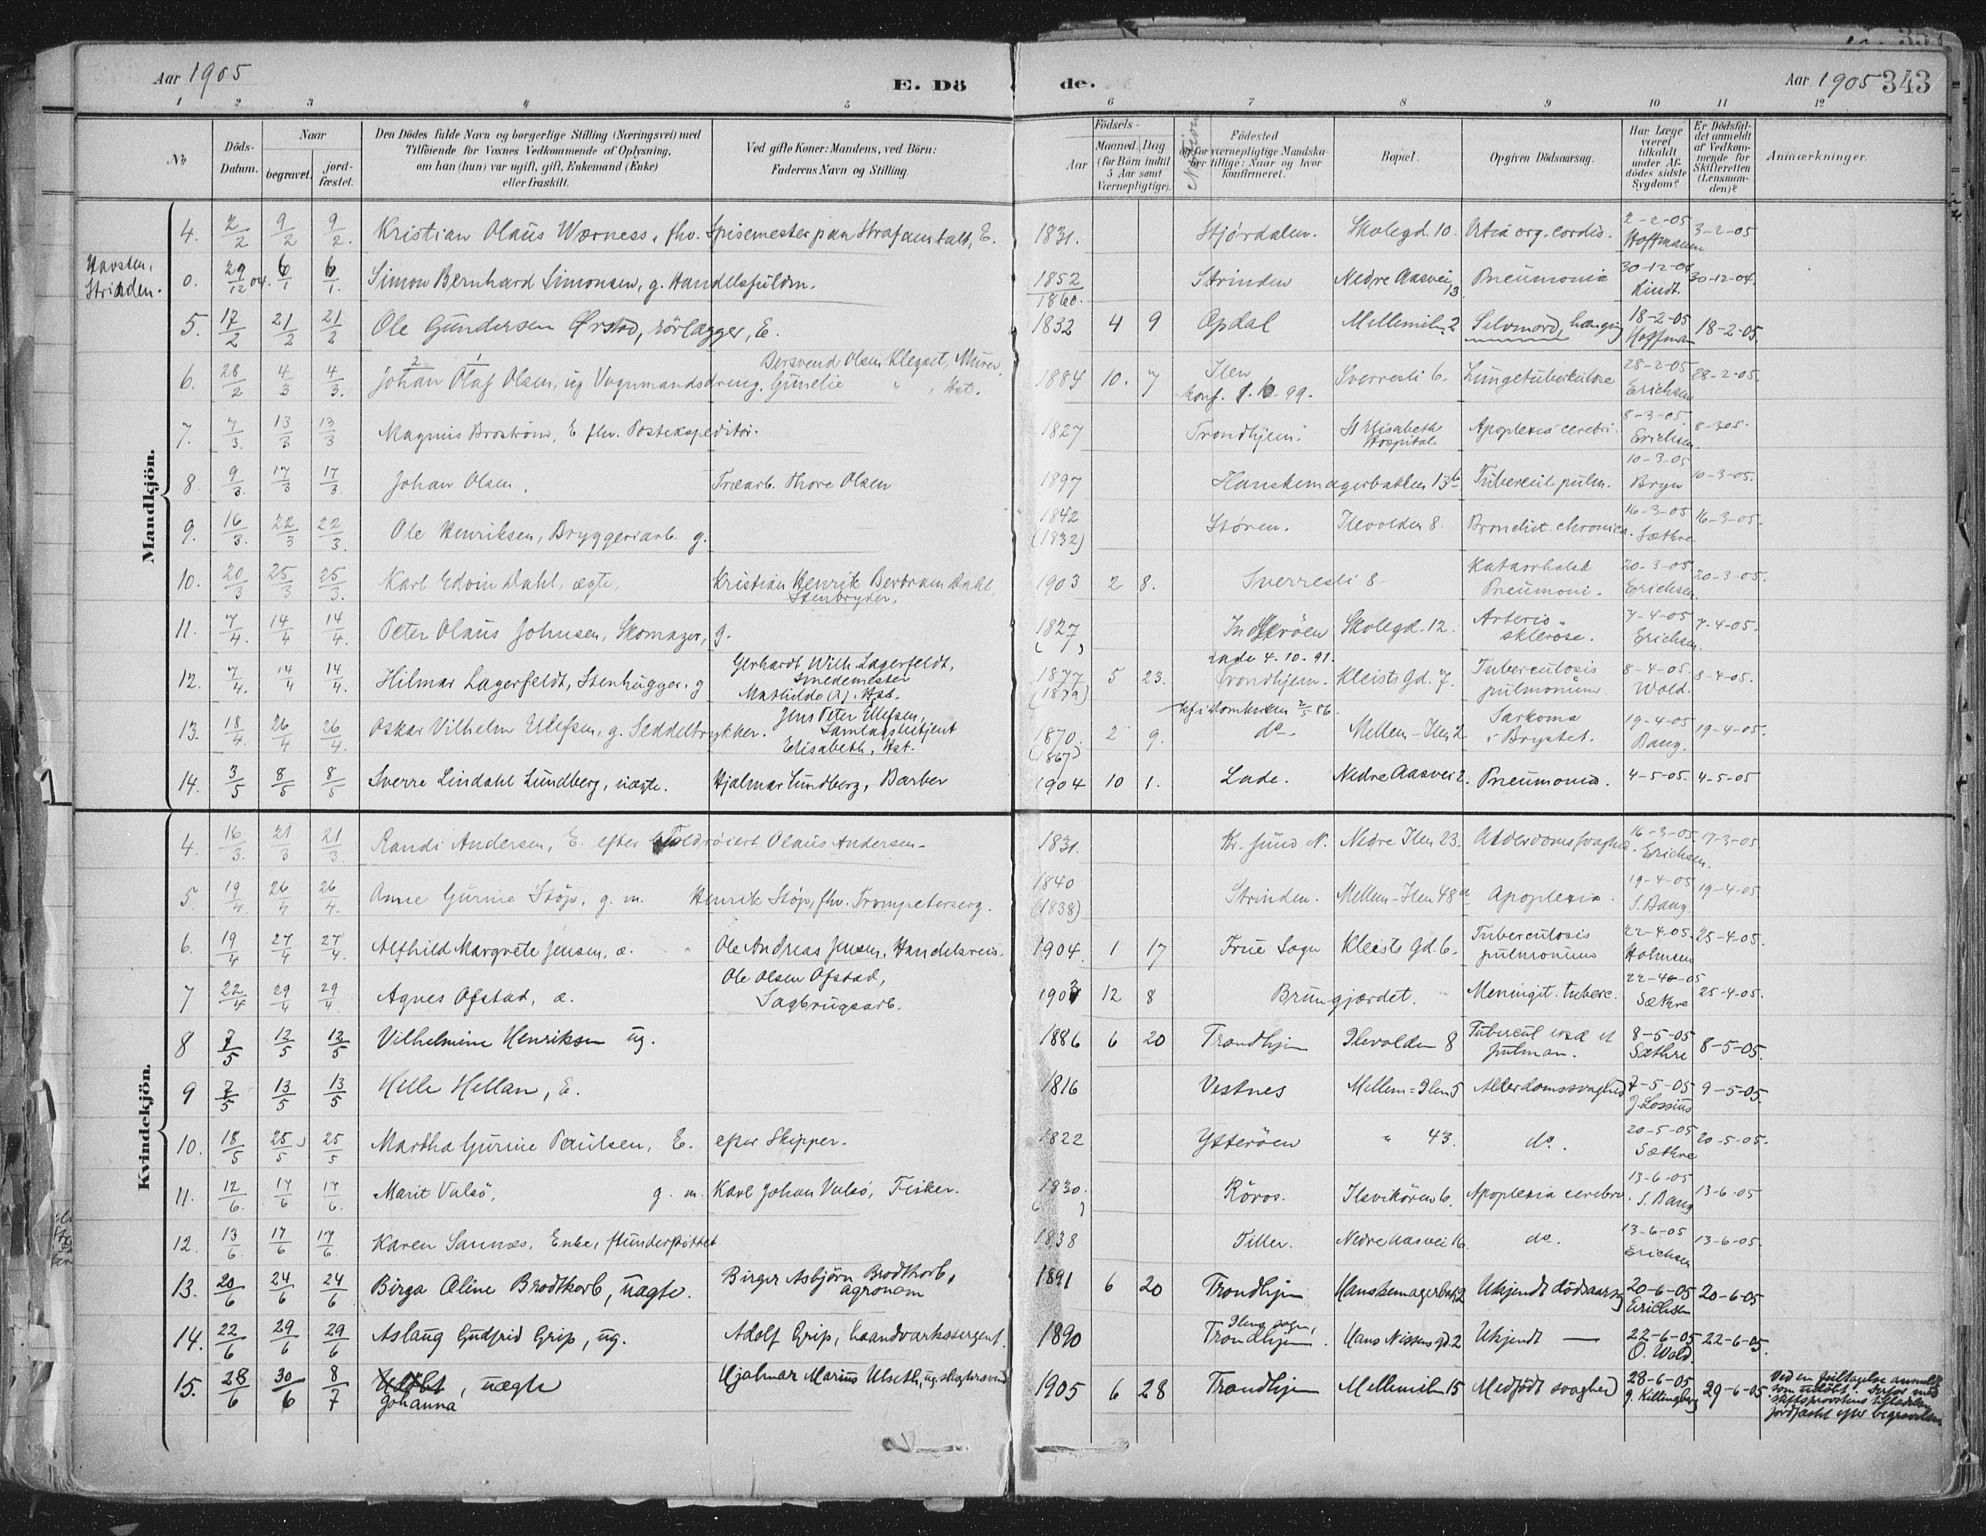 Aar 1905
E. Dö
de.
Aar 1905 343
1 2 3 4 5 6 7 8 9 10 11 12
No
Döds-Datum.
Naar
begravet.
jord-fæstet.
Den Dödes fulde Navn og borgerlige Stilling (Næringsvei) med
Tilföiende for Voxnes Vedkommende af Oplysning,
om han (hun) var ugift, gift, Enkemand (Enke)
eller fraskilt.
Ved gifte Koner: Mandens, ved Börn:
Faderens Navn og Stilling.
Födsels-
Aar
Maaned (for Börn indtil 5 Aar samt Værnepligtige).
Dag
Födested
og for værnepligtige Mandskaber tillige: Naar og hvor konfirmeret.
Bopæl.
Opgiven Dödsaarsag.
Har Læge været tilkaldt under Afdödes sidste Sygdom?
Er Dödsfaldet anmeldt af Vedkommende for Skifteretten (Lensmanden)?
Anmærkninger.
Mandkjön.
4. 2/2 9/2 9/2. Kristian Olaus Wærness, fhv. Spisemester paa Strafanstalt, E. 1831. Stjørdalen. Skolegd. 10. Vitia org. cordis. 2-2-05 Hoffmann 3-2-05
Havsten, Strinden. 0. 29/12 04. 6/1 6/1. Simon Bernhard Simonsen, g. Handelsfuldm. 1852 1860. Strinden Nedre Aasvei 13 Pneumonia 30-12-04 Lindt 30-12-04.
5. 17/2 21/2 21/2 Ole Gundersen Ørstad, rörlægger, E. 1832 4 9 Opdal Mellemilen 2 Selvmord, hængning 18-2-05 Hoffman 18-2-05.
6. 28/2 4/3 4/3. Johan Olaf Olsen, ug Vognmandsdreng. Bersvend Olsen Klegset, Murer. Gunelie " , Hst. 1884 10. 7 Ilen konf. 1.10.99. Sverresli 6. Lungetuberkulose 28-2-05 Erichsen 28-2-05.
7. 7/3. 13/3 13/3 Magnus Broström, E. fhv. Postekspeditör. 1827 Trondhjem. St Elisabeth Hospital. Apoplexia cerebri. 8-3-05 Erichsen 8-3-05.
8. 9/3. 17/3 17/3. Johan Olsen. Træarb. Thore Olsen 1897 Hanskemagerbakken 13b Tubercul. pulm. 10-3-05 Bryn 10-3-05.
9. 16/3. 22/3 22/3. Ole Henriksen, Bryggeriarb. g. 1842 (1832) Støren. Ilevolden 8. Bronchit chronica. 16-3-05 Sæthre 16-3-05.
10. 20/3 25/3 25/3. Karl Edvin Dahl, ægte, Kristian Henrik Bertram Dahl, Stenbryder, 1903 2 8. Sverresli 8 Katarrhalsk Pneumoni. 20-3-05 Erichsen. 20-3-05.
11. 7/4. 14/4 14/4. Peter Olaus Johnsen, Skomager, g. 1827 ( ) Inderöen Skolegd. 12. Arterio-sklerose. 7-4-05 Erichsen 7-4-05.
12. 7/4. 14/4 14/4. Hilmar Lagerfeldt, Stenhugger. g Gerhardt Wilh. Lagerfeldt, Smedemester Mathilde (?), Hst. 1877 (1879) 5 23. Lade 4.10.91. Trondhjem. Kleists Gd. 7. Tuberculosis pulmonum 8-4-05 Wold. 8-4-05
13. 18/4. 26/4 26/4. Oskar Vilhelm Ellefsen, g. Seddeltrykker. Jens Peter Ellefsen, Samlagsbetjent Elisabeth, Hst. 1870. (1867) 2 9. kf. i Domkirken 2/5 86. do. Mellem-Ilen 2 Sarkoma i Brystet. 19-4-05 Bang. 19-4-05.
14. 3/5 8/5 8/5 Sverre Lindahl Lundberg, uægte. Hjalmar Lundberg, Barber 1904 10 1. Lade. Nedre Aasvei 2. Pneumonia. 4-5-05. 4-5-05
Kvindekjön.
4. 16/3. 21/3 21/3 Randi Andersen, E. efter Toldröiert Olaus Andersen 1831. Kr. sund N. Nedre Ilen 23. Alderdomssvaghed. 16-3-05 Erichsen. 17-3-05
5. 19/4 26/4 26/4. Anne Gurine Støp, g. m. Henrik Støp, fhv. Trompetersergt. 1840 (1838) Strinden. Mellem-Ilen 48a Apoplexia. 19-4-05 S. Bang 19-4-05
6. 19/4 27/4 27/4. Alfhild Margrete Jensen, æ. Ole Andreas Jensen, Handelsreis. 1904. 1 17 Frue Sogn Kleists Gd. 6. Tuberculosis pulmonum 22-4-05. Holmsen 25-4-05.
7 22/4 29/4 29/4 Agnes Ofstad, æ. Ole Olsen Ofstad, Sagbrugsarb. 1903 12 8 Brungjærdet. Meningit. tuberc. 22-4-05 Sæthre 25-4-05.
8 7/5 12/5 12/5 Vilhelmine Henriksen ug. 1886 6 20 Trondhjem Ilevolden 8 Tubercul. et pulmon. 8-5-05 Sæthre 8-5-05.
9 7/5 13/5 13/5 Helle Hellan, E. 1816 Vestnes Mellem-Ilen 5 Alderdomssvaghed 7-5-05 J. Lossius 9-5-05.
10. 18/5 25/5 25/5 Martha Gurine Paulsen, E. efter Skipper. 1822 Ytteröen " 43. do. 20-5-05 Sæthre 20-5-05.
11. 12/6. 17/6 17/6. Marit Valsö, g. m. Karl Johan Valsö, Fisker. 1830. ( ) Röros. Ilsvikören 6. Apoplexia cerebri 13-6-05 S. Bang 13-6-05
12. 13/6. 17/6 17/6. Karen Sannæs, Enke, funderstöttet 1838 Tiller. Nedre Aasvei 16. do. 13-6-05 Erichsen 13-6-05.
13. 20/6 24/6 24/6 Birga Oline Brodtkorb, uægte. Birger Asbjörn Brodtkorb, agronom 1891 6 20 Trondhjem Hanskemagerbak. 2 Ukjendt dödsaarsag 20-6-05 Erichsen 20-6-05
14. 22/6 29/6 29/6 Aslaug Gudfrid Grip, ug. Adolf Grip, haandværkssergent. 1890 Ilens sogn, Trondhjem Hans Nissens gd. 2 Ukjendt — 22-6-05 O. Wold. 22-6-05.
15. 28/6 30/6 8/7 Udøbt, uægte Johanna Hjalmar Marius Ulseth, ug slagtersvend 1905 6 28 Trondhjem Mellemilen 15 Medfödt svaghed 28-6-05 J. Killingberg 29-6-05. Ved en feiltagelse anmeldt som udöbt. Derfor med stiftsprovstens tilladelse jordfæstet efter begravelsen